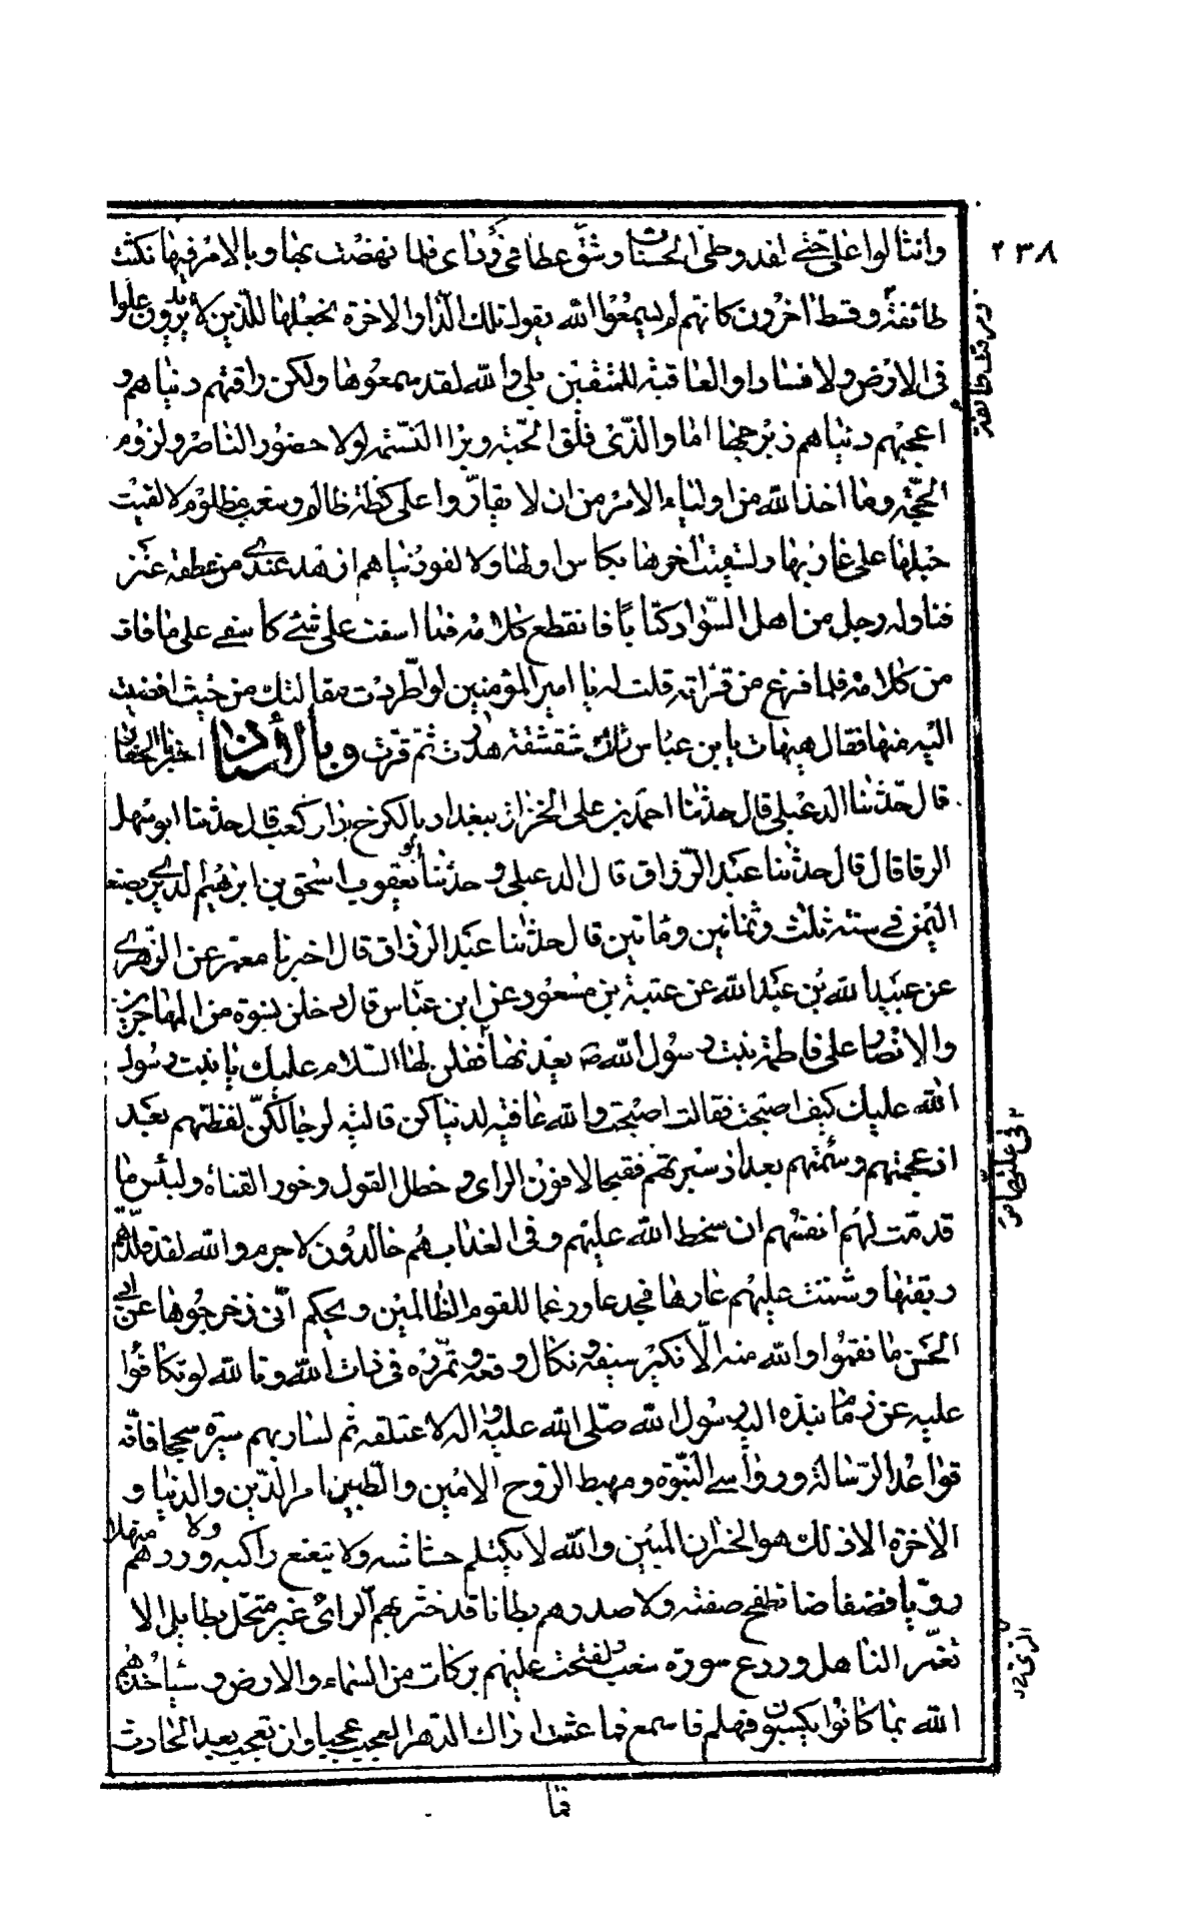 ٢٣٨
وانثالوا على حتى لقد وطئ الحسنان وشق عطافى ردائى فلما نهضت بها وبالامر فيها نكثت
طائفة وقسط اخرون كانهم لم يسمعوا الله يقول تلك الدار الاخرة نجعلها للذين لا يريدون علوا
فى الارض ولا فسادا والعاقبة للمتقين بلى والله لقد سمعوها ولكن راقتهم دنياهم و
اعجبهم دنياهم زبرجها اما والذى فلق الحبة وبرا النسمة لولا حضور الناصر ولزوم
الحجة وما اخذ الله من اولياء الامر من ان لا يقاروا على كظة ظالم وسغب مظلوم لالقيت
حبلها على غاربها ولسقيت اخرها بكاس اولها ولا لفو دنياهم ازهد عندى من عطفة عنز
فناوله رجل من اهل السواد كتابا فانقطع كلامه فما اسفت على شئ كاسفى على ما فاته
من كلامه فلما فرغ من قرائته قلت له يا امير المؤمنين لو اطردت مقالتك من حيث افضيت
اليه منها فقال هيهات يا بن عباس تلك شقشقة هدرت ثم قرت وبالأسناد اخبرنا الحفار
قال حدثنا الدعبلى قال حدثنا احمد بن على الخزاز ببغداد بالكرخ بدار كعب قال حدثنا ابو سهل
الرقا قال قال حدثنا عبد الرزاق قال الدعبلى و حدثنا ابو يعقوب اسحق بن ابرهيم الدبرى بصنعا
اليمن فى سنة ثلث وثمانين ومأتين قال حدثنا عبد الرزاق قال اخبرنا معمر عن الزهرى
عن عبيد الله بن عبد الله عن عتبة بن مسعود عن ابن عباس قال دخلن نسوة من المهاجرين
والانصار على فاطمة بنت رسول الله ص يعدنها فقلن لها السلام عليك يا بنت رسول
الله عليك كيف اصبحت فقالت اصبحت والله عائفة لدنياكن قالية لرجالكن لفظتهم بعد
اذ عجمتهم وسئمتهم بعد اذ سبرتهم فقبحا لافون الراى و خطل القول وخور القناة ولبئس ما
قدمت لهم انفسهم ان سخط الله عليهم وفى العذاب هم خالدون لا جرم والله لقد قلدتهم
ربقتها وشننت عليهم عارها فجدعا ورغما للقوم الظالمين ويحكم انى زحزحوها عن ابى
الحسن ما نقموا والله منه الا نكير سيفه ونكال وقعه وتنمره فى ذات الله وتا لله لو تكافوا
عليه عن زمام نبذه اليه رسول الله صلى الله عليه واله لاعتلقه ثم لسار بهم سيرة سجحا فانه
قواعد الرسالة ورواسى النبوة ومهبط الروح الامين والطبين امر الدين والدنيا و
الاخرة الا ذلك هو الخسران المبين والله لا يكتلم خشاشه ولا يتعتع راكبه ولاوردهم منهلا
رويا فضفاضا تطفح ضفته ولاصدرهم بطانا قد خثر بهم الرى غير متحل بطايل الا
تغمر الناهل وردع سورة سغب ولفتحت عليهم بركات من السماء والارض و سياخذهم
الله بما كانوا يكسبون فهلم فاسمع فما عشت اراك الدهر العجب عجبا وان تعجب بعد الحادث
فما